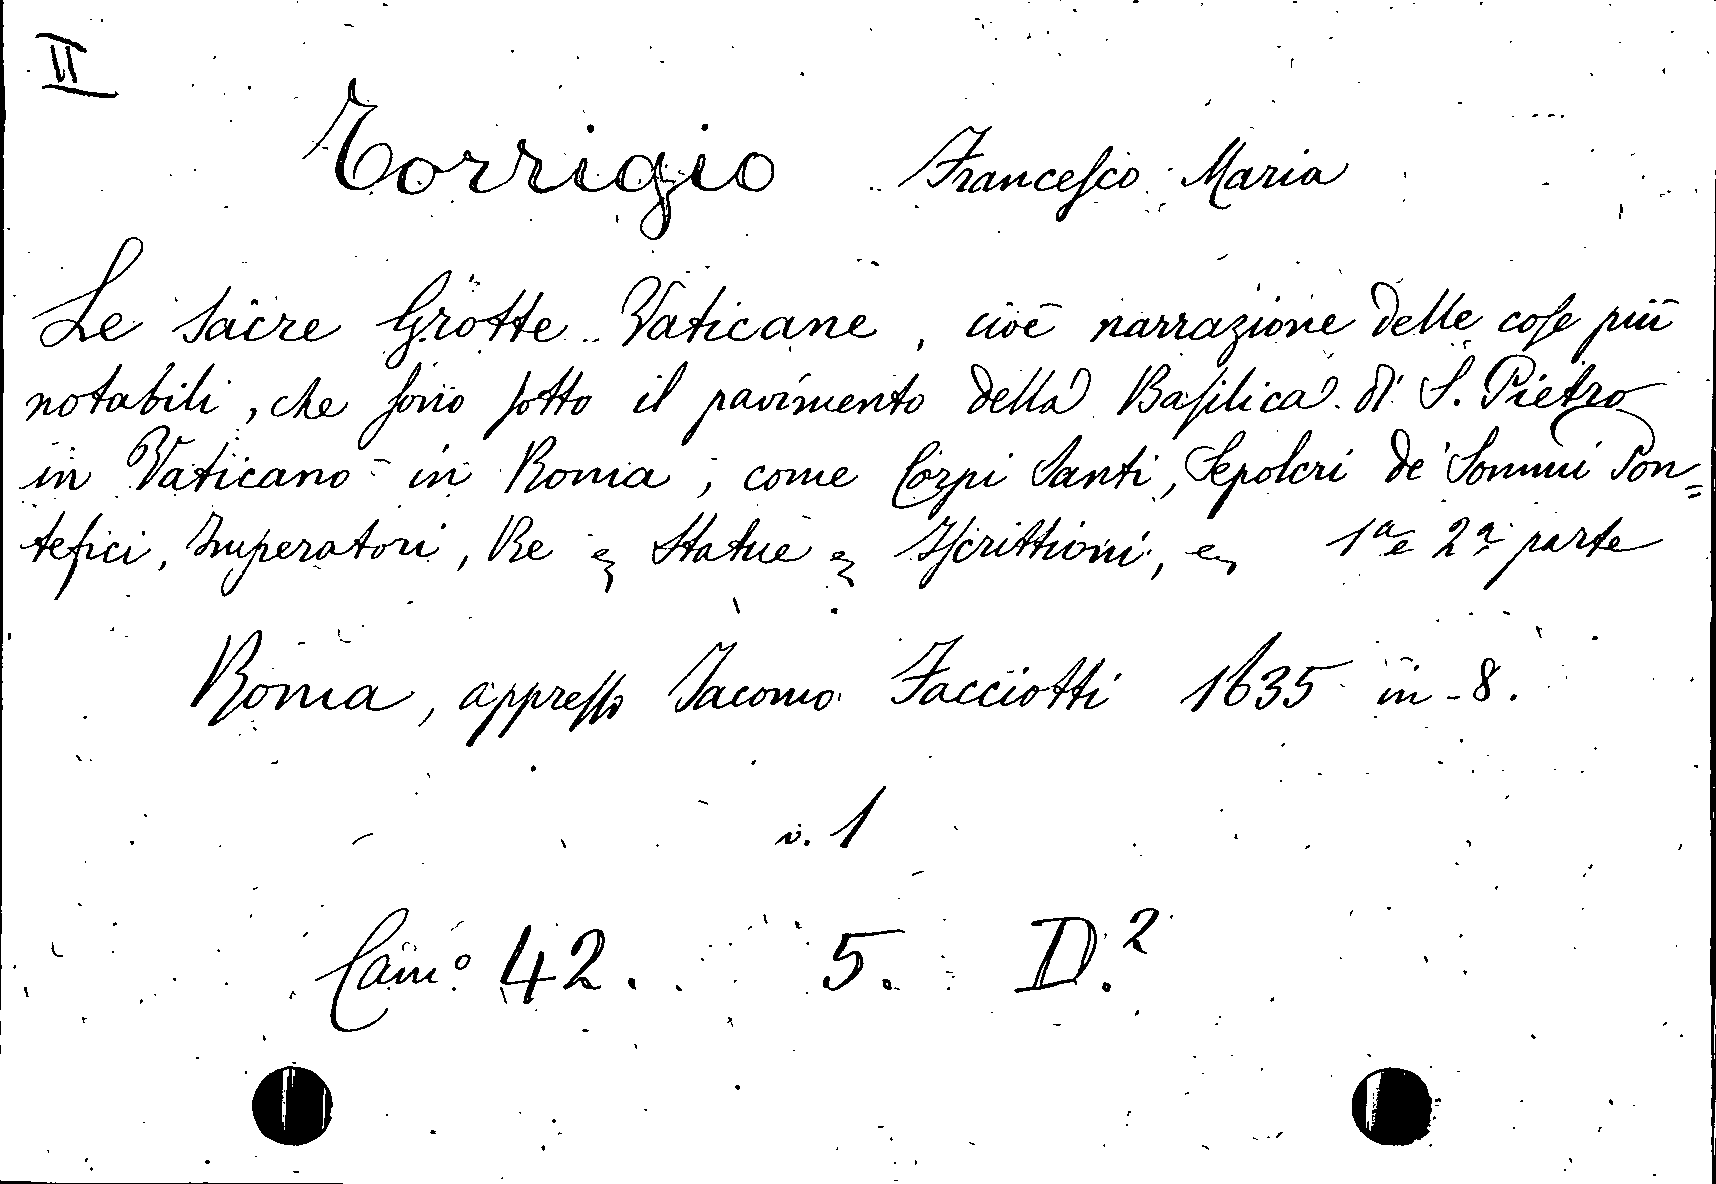 II
Torrigio Francesco Maria
Le Sacre Grotte Vaticane, cioè narrazione delle cose più
notabili, che sono sotto il pavimento della Basilica di S. Pietro
in Vaticano in Roma, come Corpi Santi, Sepolcri de' Sommi Pon=
tefici, Imperatori, Re & Statue & Iscrittioni, & 1a e 2a parte
Roma, appresso Jacomo Facciotti 1635 in-8.
v. 1
Cam° 42. 5. D.²